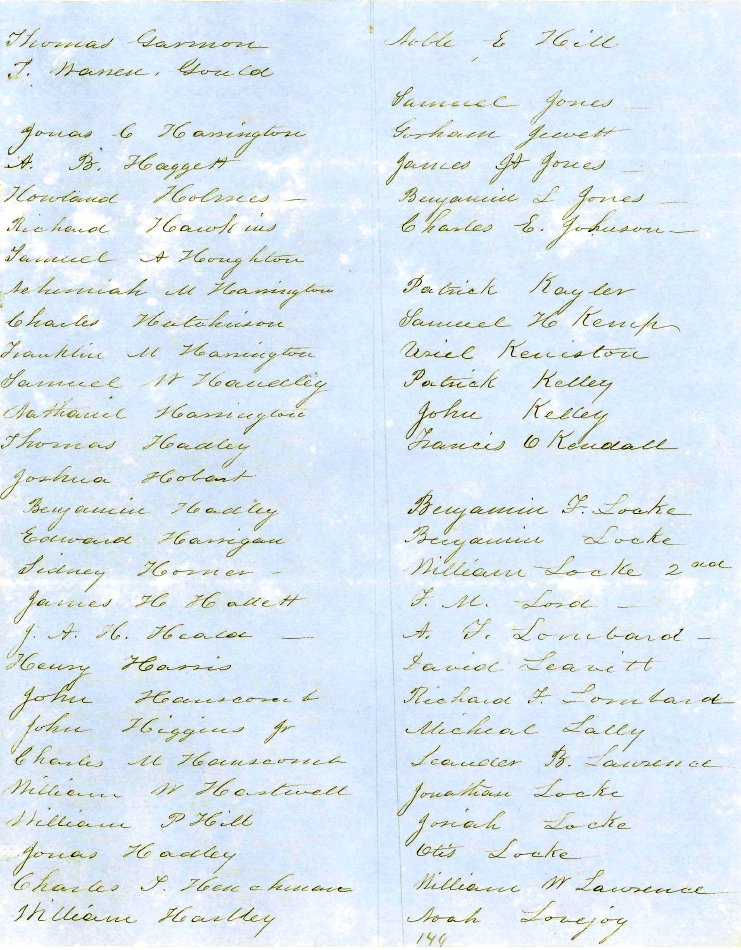 Thomas Garmon
T. Warren. Gould
Jonas C Harrington
A. B. Haggett
Howland Holmes —
Richard Hawkins
Samuel A Houghton
Nehemiah M Harrington
Charles Hutchinson
Franklin M Harrington
Samuel W Handley
Nathaniel Harrington
Thomas Hadley
Joshua Hobart
Benjamin Hadley
Edward Harrigan
Sidney Homer —
James H Hallett
J. A. H. Heald —
Henry Harris
John Hanscomb
John Higgins Jr
Charles M Hanscomb
William W Hartwell
William P Hill
Jonas Hadley
Charles P. Henchman
William Hartley
Noble E Hill
Samuel Jones —
Gorham Jewett
James H Jones —
Benjamin L Jones —
Charles E. Johnson —
Patrick Kayler
Samuel H Kemp
Uriel Keniston
Patrick Kelley
John Kelley
Francis O Kendall
Benjamin F. Locke
Benjamin Locke
William Locke 2nd
T. M. Lord —
A. T. Lombard —
David Leavitt
Richard F. Lombard
Micheal Lally
Leander B. Lawrence
Jonathan Locke
Josiah Locke
Otis Locke
William W Lawrence
Noah Lovejoy
149